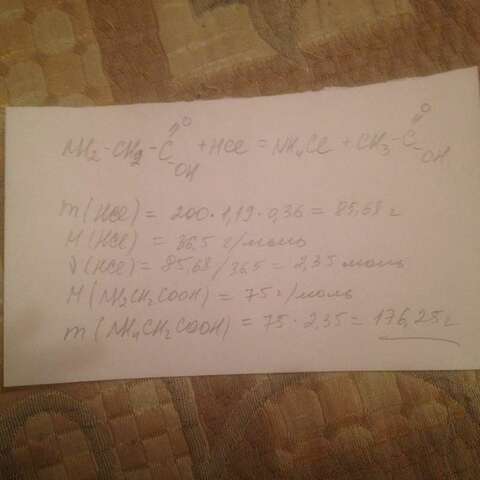 NH₂-CH₂-C=O-OH + HCl = NH₄Cl + CH₃-C=O-OH
m(HCl) = 200·1,19·0,36 = 85,68 г
M(HCl) = 36,5 г/моль
ν(HCl) = 85,68/36,5 = 2,35 моль
M(NH₂CH₂COOH) = 75 г/моль
m(NH₂CH₂COOH) = 75·2,35 = 176,25 г